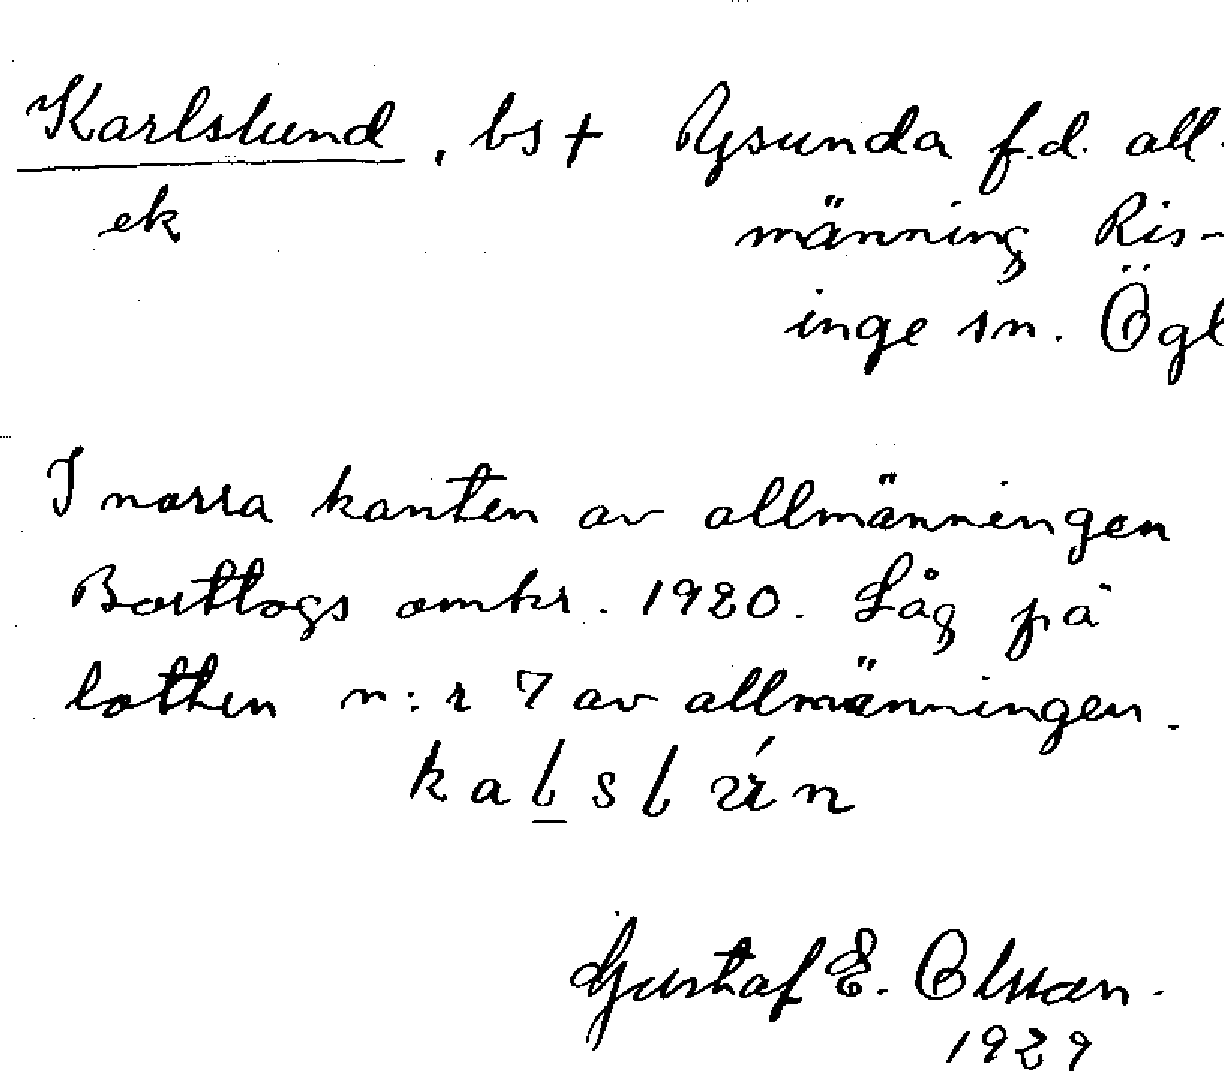 Karlslund, bs † Rysunda f.d. all-
ek männing Ris-
inge sn. Ögl
I norra kanten av allmänningen
Borttogs omkr. 1920. Låg på
lotten n:r 7 av allmänningen.
k a l s l n
Gustaf E. Olsson.
1929